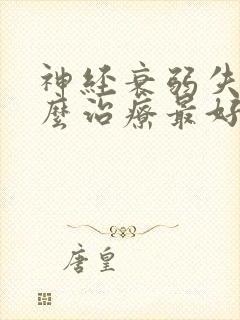 神經衰弱失
麼治療最好
唐皇